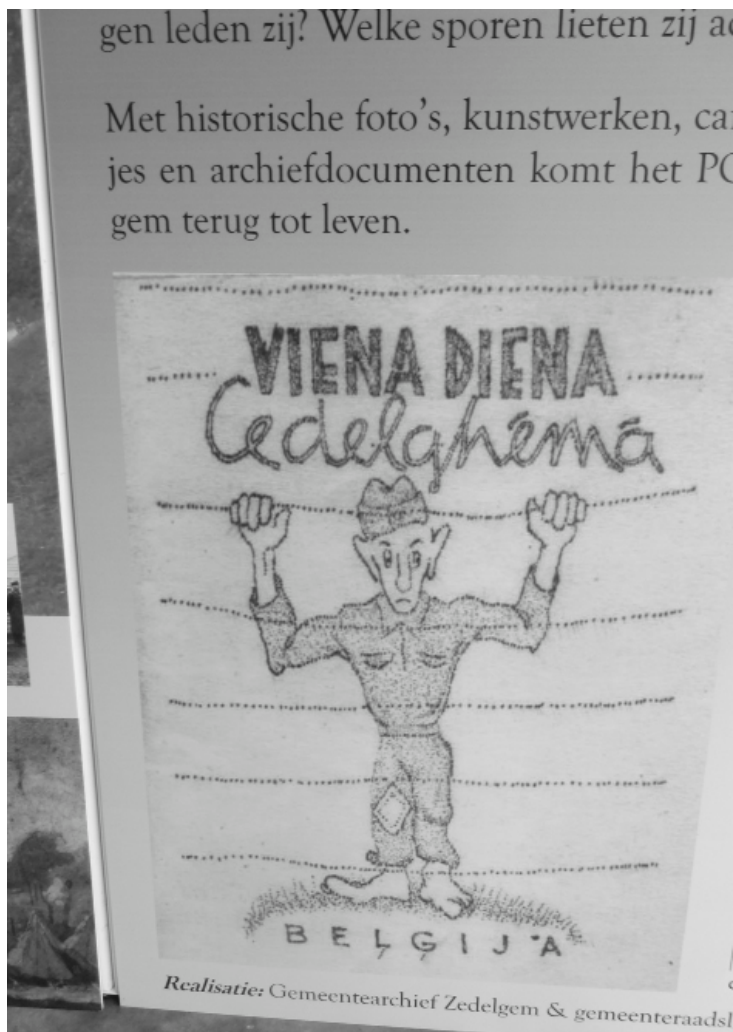 gen leden zij? Welke sporen lieten zij
Met historische foto's, kunstwerken,
jes en archiefdocumenten komt het
gem terug tot leven.
VIENA DIENA
Cedelghēmā
BEĻĢIJĀ
Realisatie: Gemeentearchief Zedelgem &